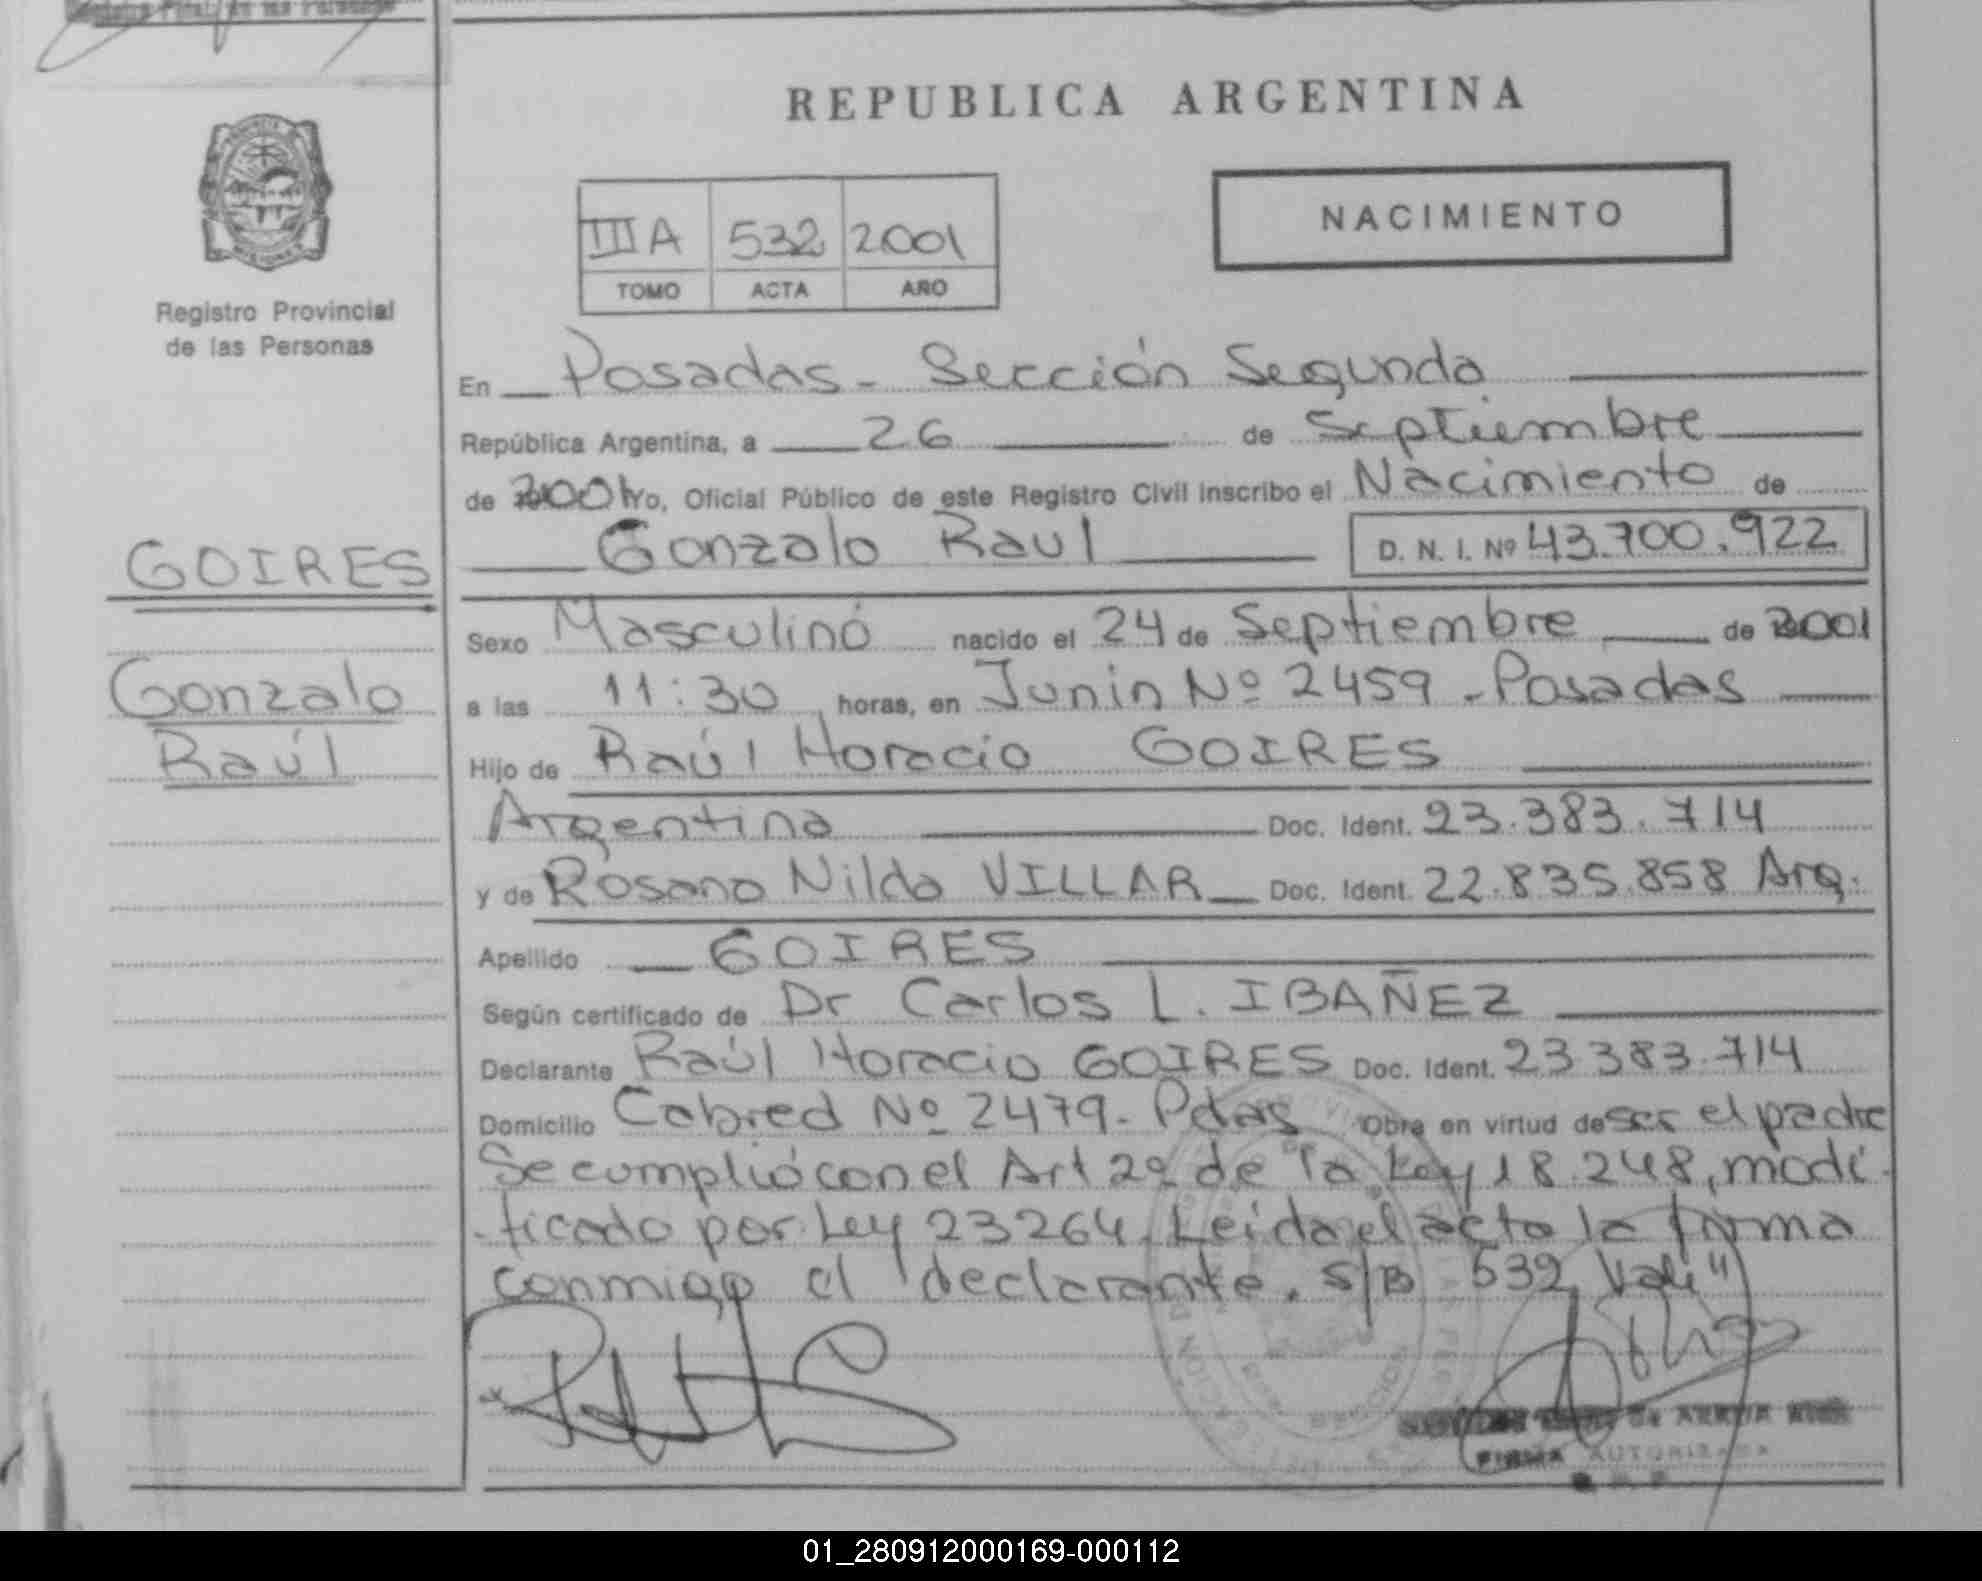 REPUBLICA ARGENTINA
NACIMIENTO
III A 532 2001
TOMO ACTA AÑO
Registro Provincial
de las Personas
En Posadas - Sección Segunda
República Argentina, a 26 de Septiembre
de 2001 Yo, Oficial Público de este Registro Civil inscribo el Nacimiento de
Gonzalo Raul D. N. I. Nº 43.700.922
GOIRES
Gonzalo
Raúl
Sexo Masculino nacido el 24 de Septiembre de 2001
a las 11:30 horas, en Junin Nº 2459 - Posadas
Hijo de Raúl Horacio GOIRES
Argentina Doc. Ident. 23.383.714
y de Rosana Nilda VILLAR Doc. Ident. 22.835.858 Arg.
Apellido GOIRES
Según certificado de Dr Carlos L. IBAÑEZ
Declarante Raúl Horacio GOIRES Doc. Ident. 23 383.714
Domicilio Cabred Nº 2479 - Pdas Obra en virtud de ser el padre
Se cumplió con el Art 2º de la Ley 18.248, modi-
-ficado por Ley 23264. Leida el acta la firma
conmigo el declarante. S/B 532 Vale"
FIRMA AUTORIZADA
01_280912000169-000112